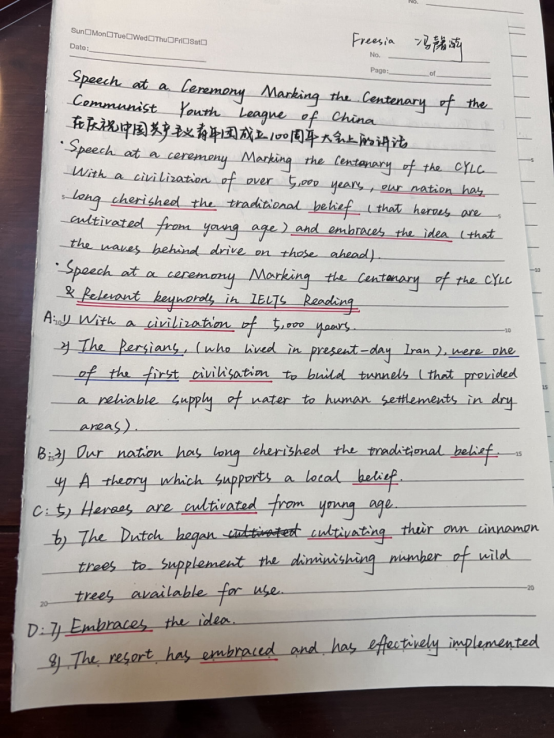 No.
Sun□Mon□Tue□Wed□Thu□Fri□Sat□
Freesia 冯馨
Date:
No.
Page: of
Speech at a Ceremony Marking the Centenary of the
Communist Youth League of China
在庆祝中国共产主义青年团成立100周年大会上的讲话
· Speech at a ceremony Marking the Centenary of the CYLC
With a civilization of over 5,000 years, our nation has
long cherished the traditional belief (that heroes are
cultivated from young age) and embraces the idea (that
the waves behind drive on those ahead).
· Speech at a ceremony Marking the Centenary of the CYLC
& Relevant keywords in IELTS Reading
A: 1) With a civilization of 5,000 years.
2) The Persians, (who lived in present-day Iran), were one
of the first civilisation to build tunnels (that provided
a reliable supply of water to human settlements in dry
areas).
B: 3) Our nation has long cherished the traditional belief.
4) A theory which supports a local belief.
C: 5) Heroes are cultivated from young age.
6) The Dutch began cultivated cultivating their own cinnamon
trees to supplement the diminishing number of wild
trees available for use.
D: 7) Embraces the idea.
8) The resort has embraced and has effectively implemented